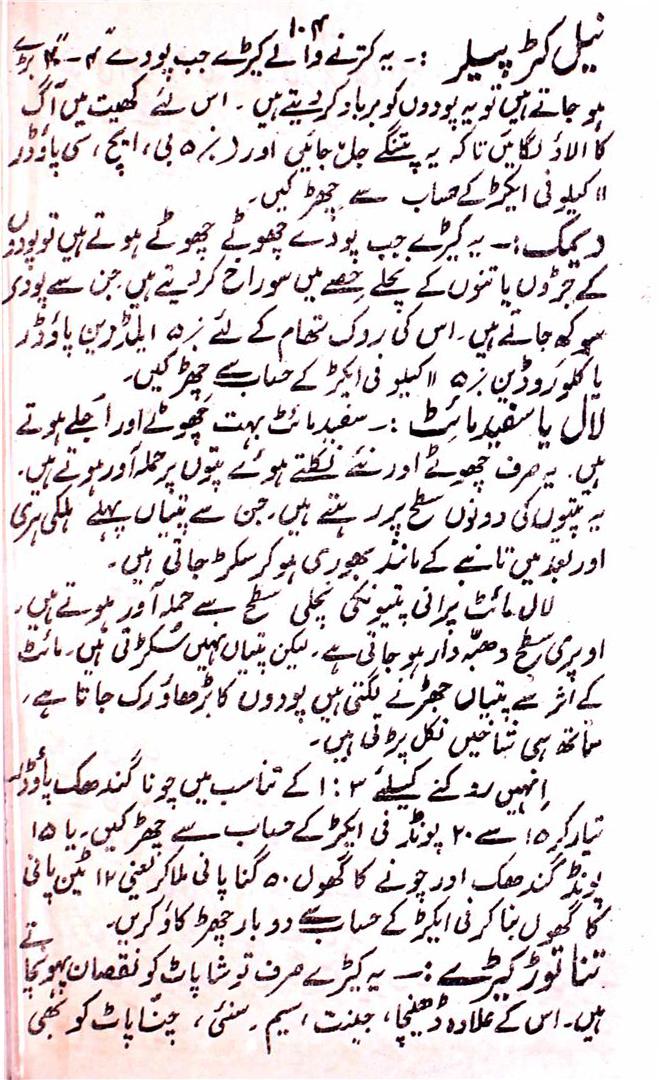 ۱۰۴
نیل کٹر پیلر :۔ یہ کترنے والے کیڑے جب پودے ۳"-۴" بڑے
ہو جاتے ہیں تو یہ پودوں کو برباد کر دیتے ہیں ۔ اس لئے کھیت میں آگ
کا الاؤ لگائیں تاکہ یہ پتنگے جل جائیں اور (٪۵ بی، ایچ، سی پاؤڈر
۱۱ کیلو فی ایکڑ کے حساب سے چھڑکیں۔
دیمک :۔ یہ کیڑے جب پودے چھوٹے چھوٹے ہوتے ہیں تو پودوں
کے جڑوں یا تنوں کے نچلے حصے میں سوراخ کر دیتے ہیں جن سے پودی
سوکھ جاتے ہیں۔ اس کی روک تھام کے لئے ٪۵ ایلڈرین پاؤڈر
یا کلوروڈین ٪۵ ۱۱ کیلو فی ایکڑ کے حساب سے چھڑکیں۔
لال یا سفید مائٹ :۔ سفید مائٹ بہت چھوٹے اور اجلے ہوتے
ہیں۔ یہ صرف چھوٹے اور نئے نکلتے ہوئے پتوں پر حملہ آور ہوتے ہیں۔
یہ پتیوں کی دونوں سطح پر رہتے ہیں۔ جن سے پتیاں پہلے ہلکی ہری
اور بعد میں تانبے کے مانند بھوری ہو کر سکڑ جاتی ہیں۔
لال مائٹ پرانی پتیونکی نچلی سطح سے حملہ آور ہوتے ہیں۔
اوپری سطح دھبّہ دار ہو جاتی ہے۔ لیکن پتیاں نہیں سُکڑتی ہیں۔ مائٹ
کے اثر سے پتیاں جھڑنے لگتی ہیں پودوں کا بڑھاؤ رک جاتا ہے،
ساتھ ہی شاخیں نکل پڑتی ہیں۔
اِنہیں روکنے کیلئے ۱:۳ کے تناسب میں چونا گندھک پاؤڈر
تیار کر ۱۵ سے ۲۰ پونڈ فی ایکڑ کے حساب سے چھڑکیں۔ یا ۱۵
پونڈ گندھک اور چونے کا گھول ۵۰ گنا پانی ملا کر یعنی ۱۲ ٹین پانی
کا گھول بنا کر فی ایکڑ کے حساب سے دو بار چھڑکاؤ کریں۔
تنا توڑ کیڑے :۔ یہ کیڑے صرف تو شا پاٹ کو نقصان پہونچاتے
ہیں۔ اس کے علاوہ ڈھینچا، جینت، سیم۔ سنئی، چنّا پاٹ کو بھی